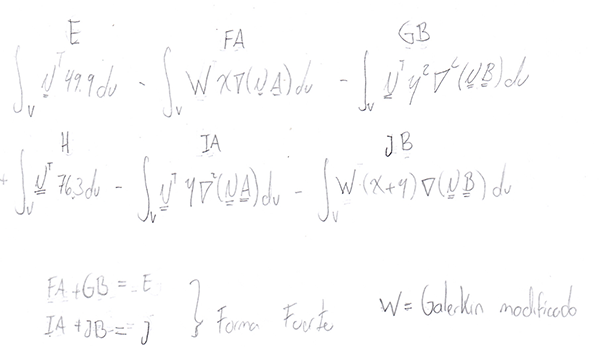 E FA GB
∫_V N^T 49.9 dv - ∫_V W x ∇(N A) dv - ∫_V N^T y² ∇²(N B) dv
H IA JB
+ ∫_V N^T 76.3 dv - ∫_V N^T y ∇²(N A) dv - ∫_V W (x+y) ∇(N B) dv
FA + GB = E
IA + JB = J } Forma Fuerte W = Galerkin modificado